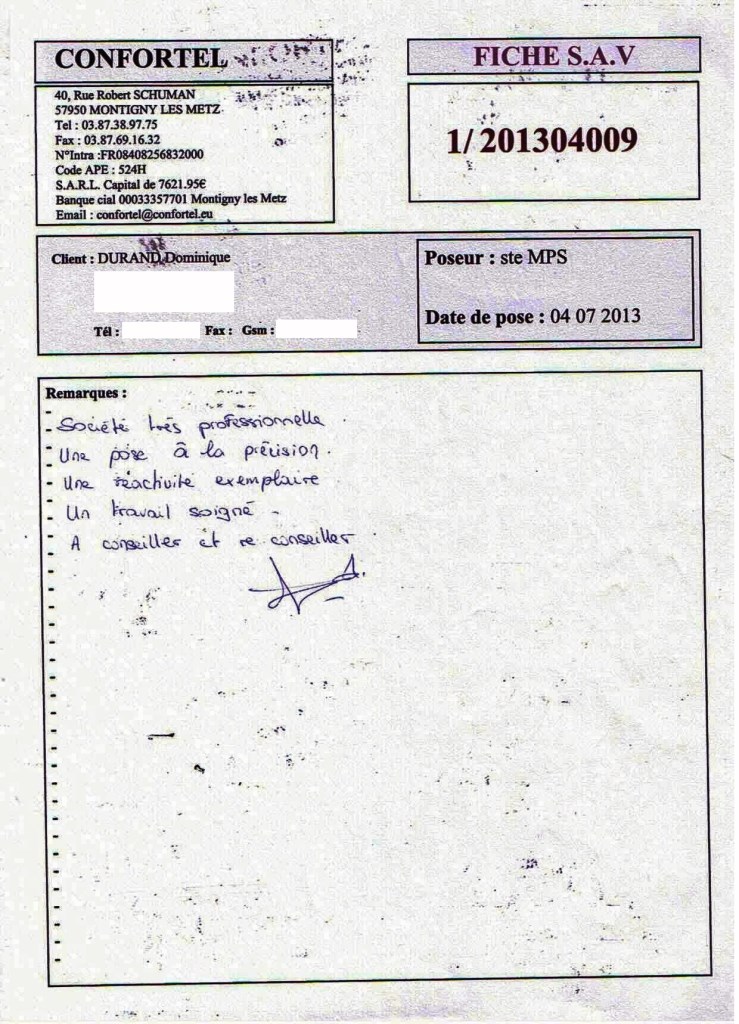 CONFORTEL
FICHE S.A.V
40, Rue Robert SCHUMAN
57950 MONTIGNY LES METZ
Tel : 03.87.38.97.75
Fax : 03.87.69.16.32
N°Intra :FR08408256832000
Code APE : 524H
S.A.R.L. Capital de 7621.95€
Banque cial 00033357701 Montigny les Metz
Email : confortel@confortel.eu
1/ 201304009
Client : DURAND Dominique
Tél : Fax : Gsm :
Poseur : ste MPS
Date de pose : 04 07 2013
Remarques :
Société très professionnelle.
Une pose à la précision.
Une réactivité exemplaire
Un travail soigné -
A conseiller et re conseiller.